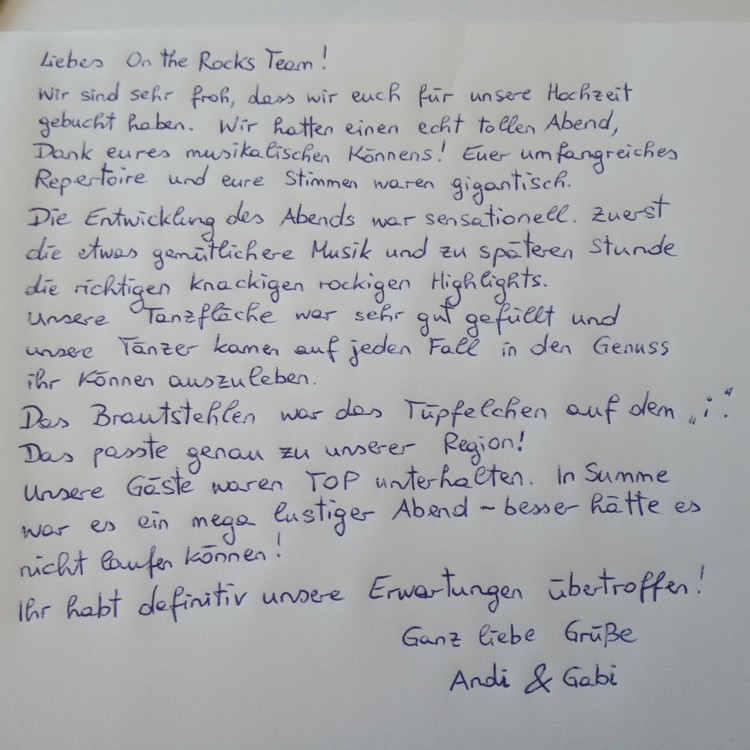 Liebes On the Rocks Team!
Wir sind sehr froh, dass wir euch für unsere Hochzeit
gebucht haben. Wir hatten einen echt tollen Abend,
Dank eures musikalischen Könnens! Euer umfangreiches
Repertoire und eure Stimmen waren gigantisch.
Die Entwicklung des Abends war sensationell. Zuerst
die etwas gemütlichere Musik und zu späteren Stunde
die richtigen knackigen rockigen Highlights.
Unsere Tanzfläche war sehr gut gefüllt und
unsere Tänzer kamen auf jeden Fall in den Genuss
ihr Können auszuleben.
Das Brautstehlen war das Tüpfelchen auf dem „i".
Das passte genau zu unserer Region!
Unsere Gäste waren TOP unterhalten. In Summe
war es ein mega lustiger Abend – besser hätte es
nicht laufen können!
Ihr habt definitiv unsere Erwartungen übertroffen!
Ganz liebe Grüße
Andi & Gabi